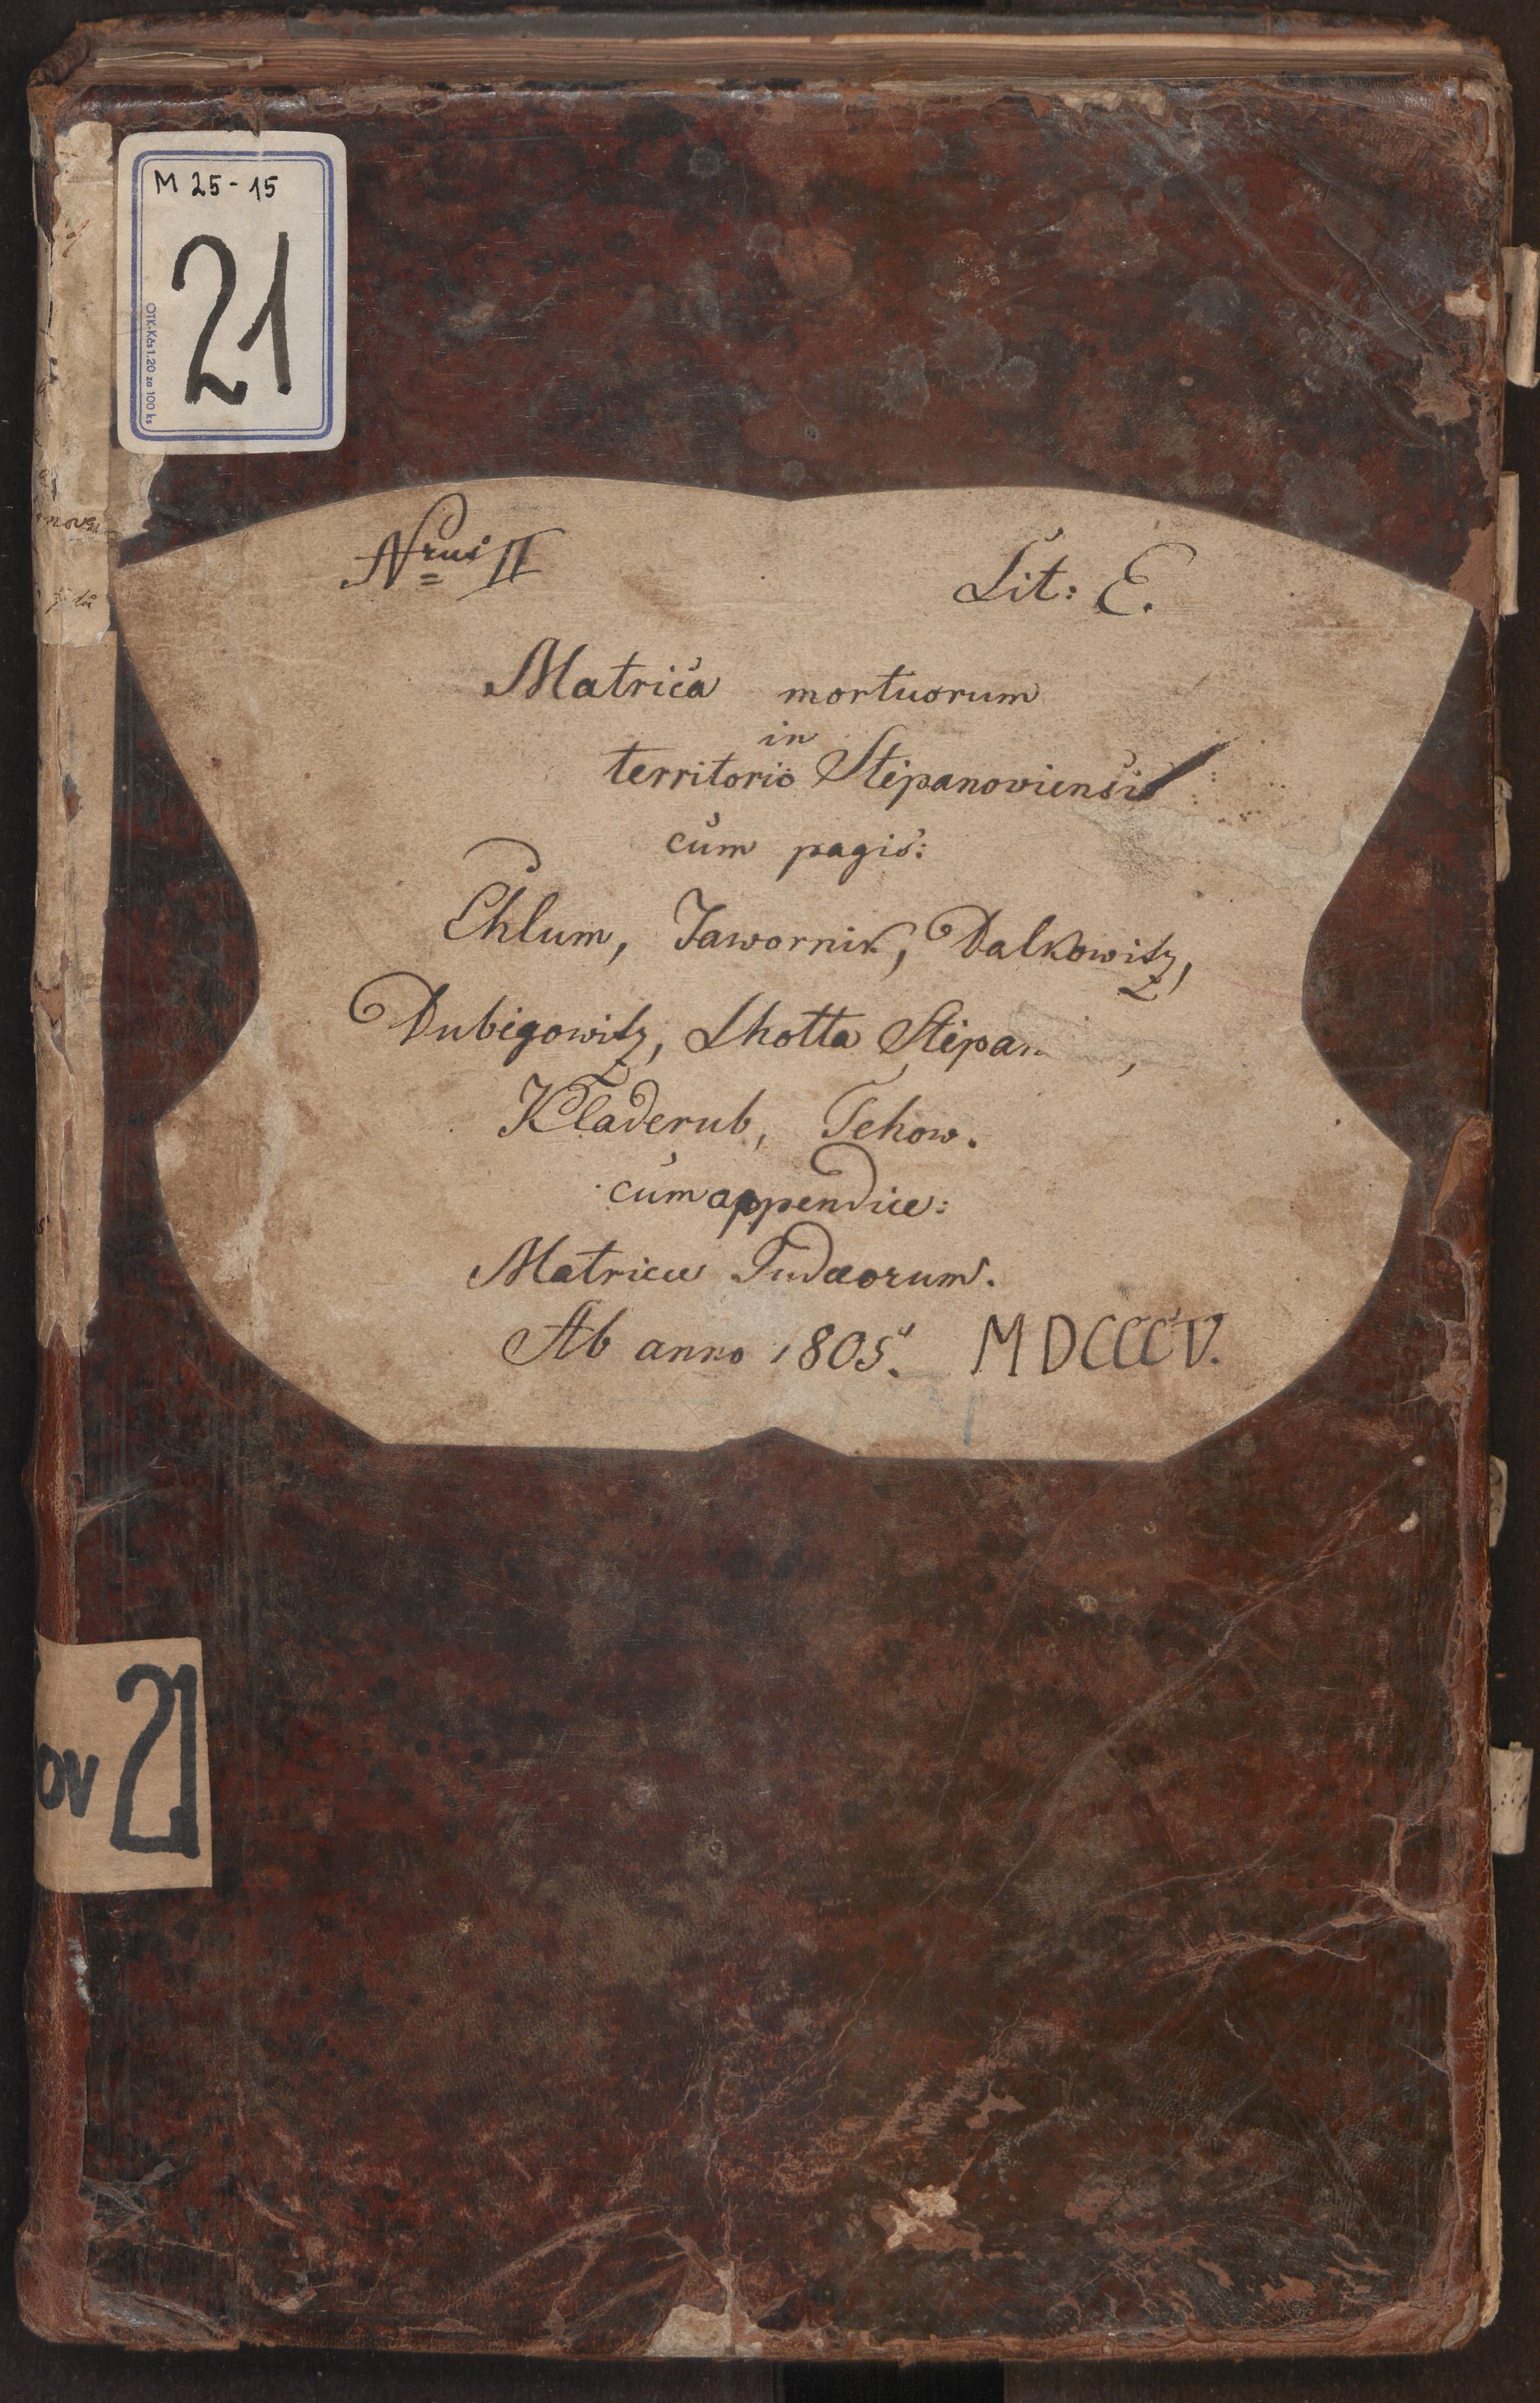 M 25-15
21
OTK-Kčs 1.20 za 100 ks
Nrus II
Lit: E.
Matrica mortuorum
in
territorio Stėpanoviensi
cum pagis:
Chlum, Jawornik, Dalkowitz,
Dubigowitz, Lhotta Stėpan ,
Kladerub, Tehow.
cum appendice:
Matricæ Judæorum.
Ab anno 1805. MDCCCV.
ov 21